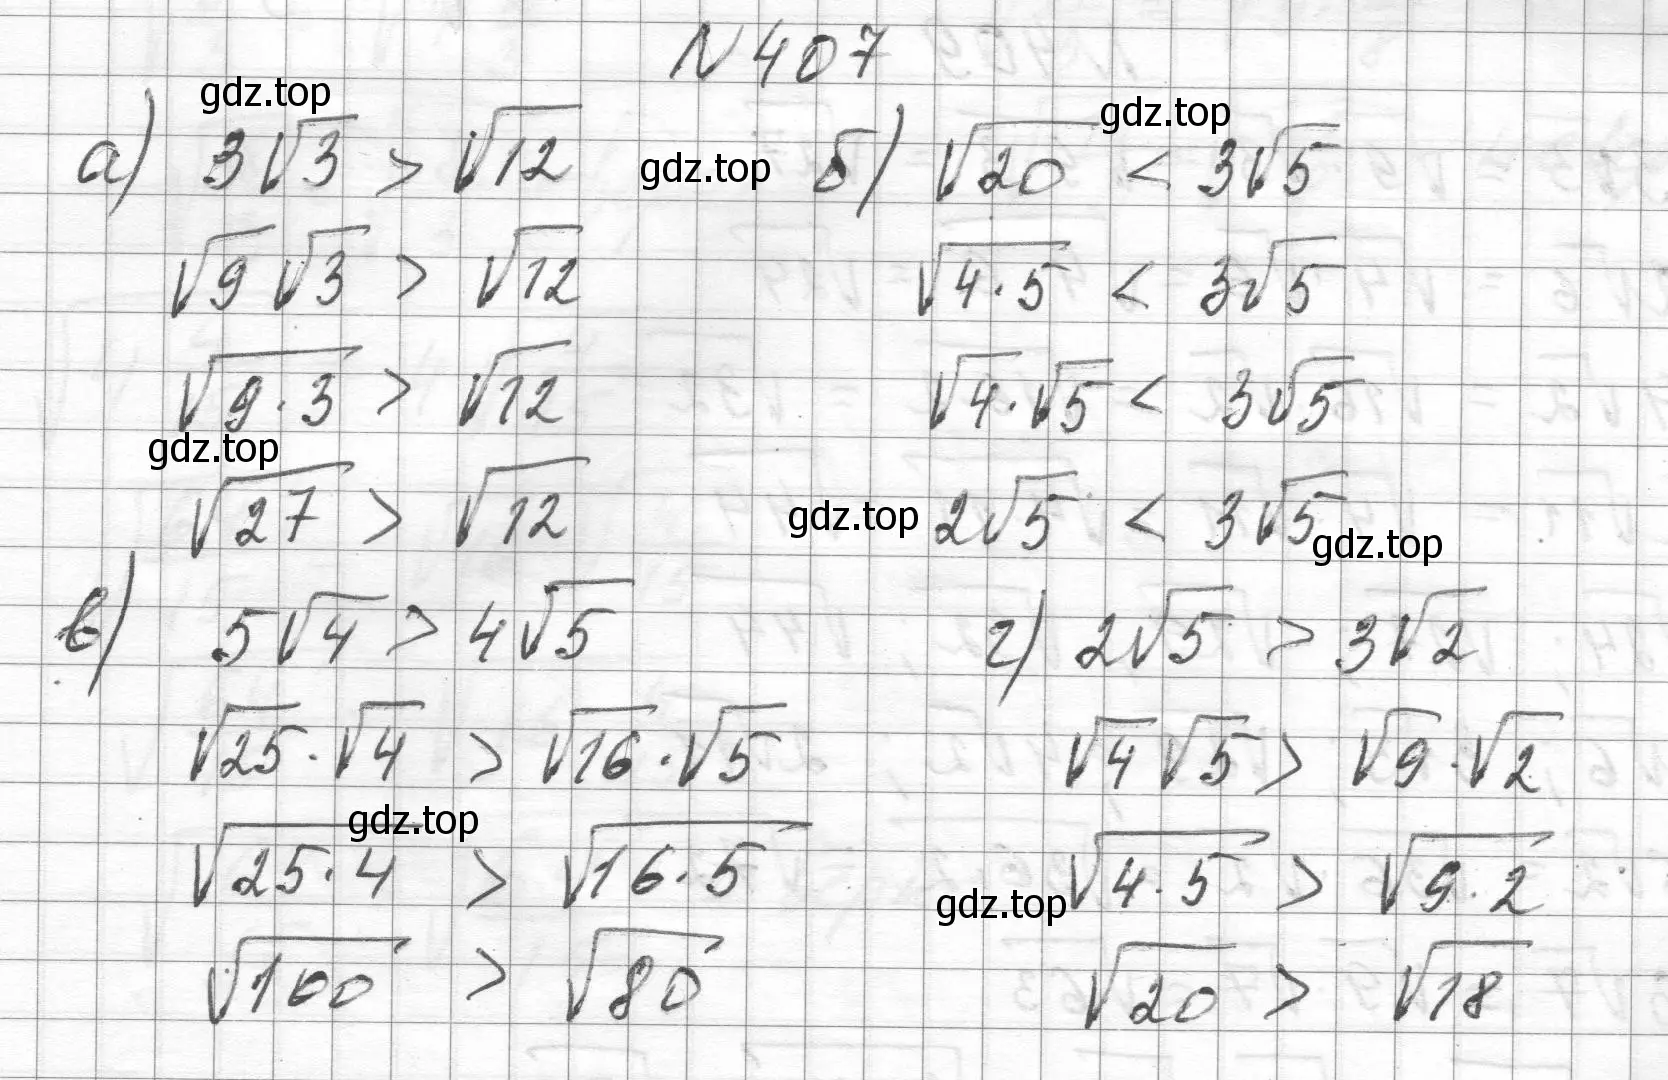 N 407
gdz.top
а) 3√3 > √12
gdz.top
√9 √3 > √12
√(9·3) > √12
gdz.top
√27 > √12
gdz.top
б) √20 < 3√5
√(4·5) < 3√5
√4·√5 < 3√5
gdz.top
2√5 < 3√5
gdz.top
в) 5√4 > 4√5
√25·√4 > √16·√5
gdz.top
√(25·4) > √(16·5)
√100 > √80
г) 2√5 > 3√2
√4 √5 > √9·√2
gdz.top
√(4·5) > √(9·2)
√20 > √18